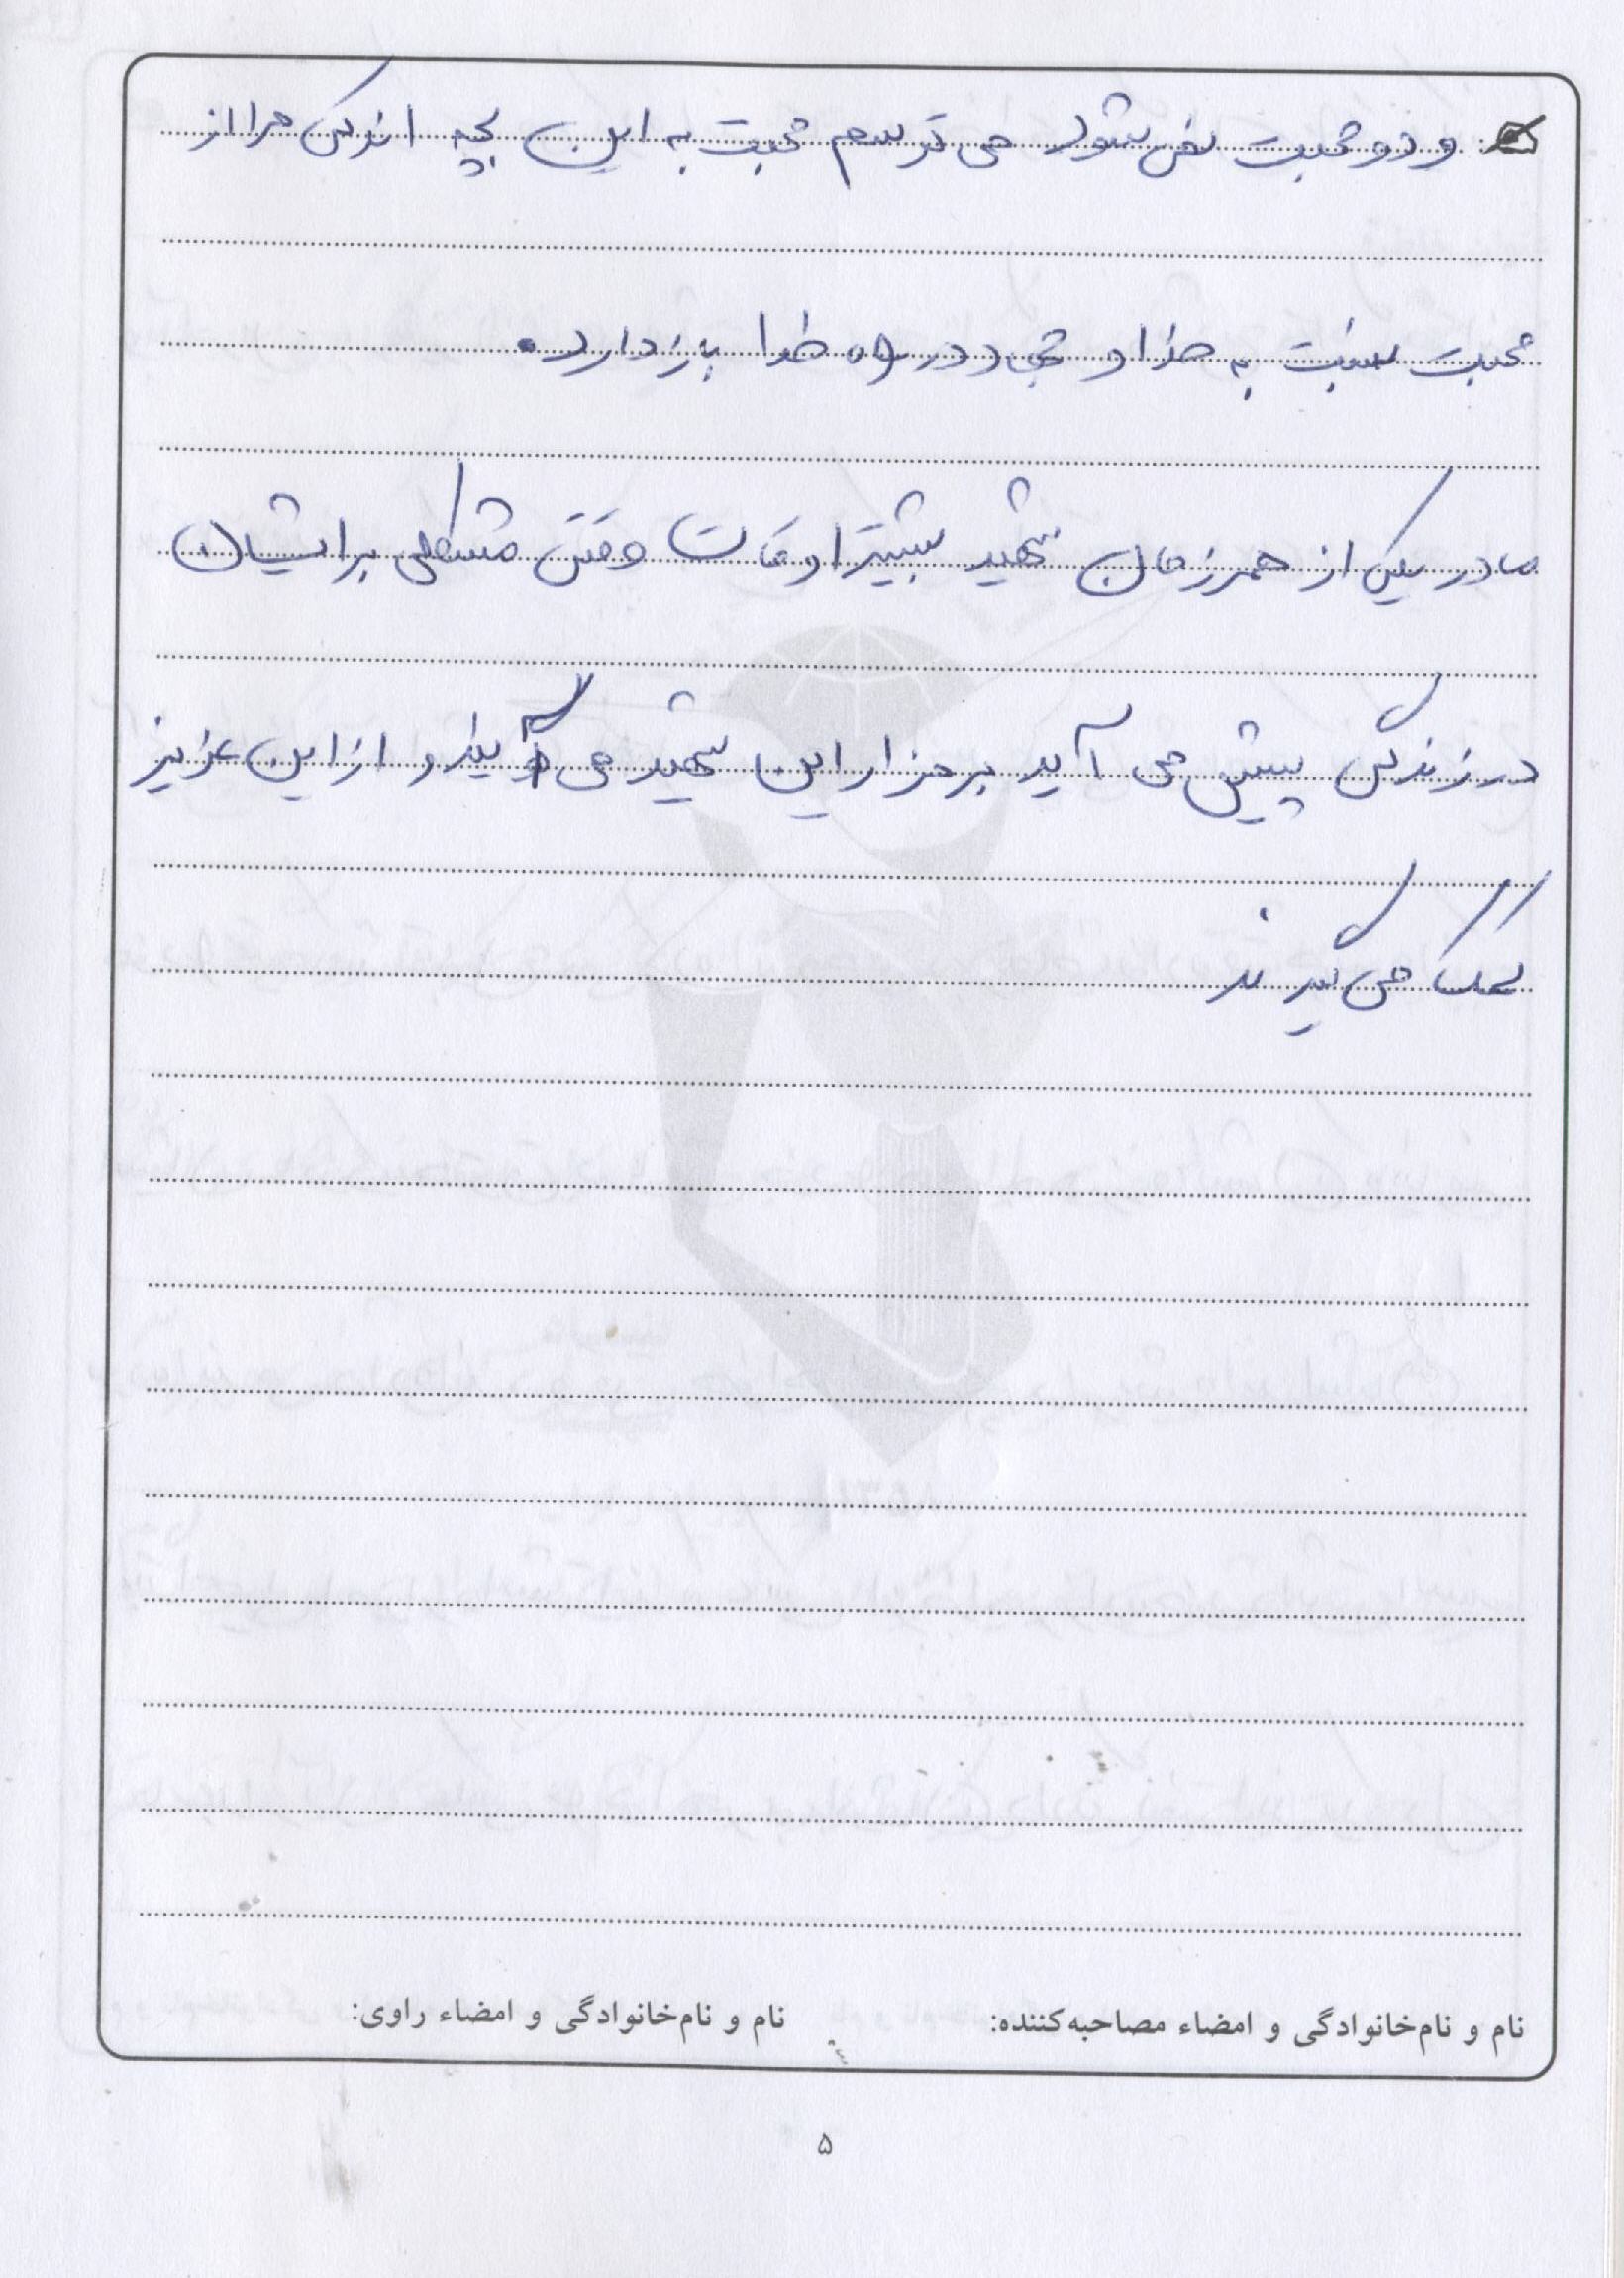 و دو محبت نمی‌شود می‌ترسم محبت به این بچه اندکی مرا از
محبت نسبت به خدا و جهاد در راه خدا باز دارد.
مادر یکی از همرزمان شهید بیشتر اوقات وقتی مشکلی برایشان
در زندگی پیش می‌آید بر مزار این شهید می‌گویند و از این عزیز
کمک می‌گیرند
نام و نام‌خانوادگی و امضاء مصاحبه‌کننده: نام و نام‌خانوادگی و امضاء راوی:
۵